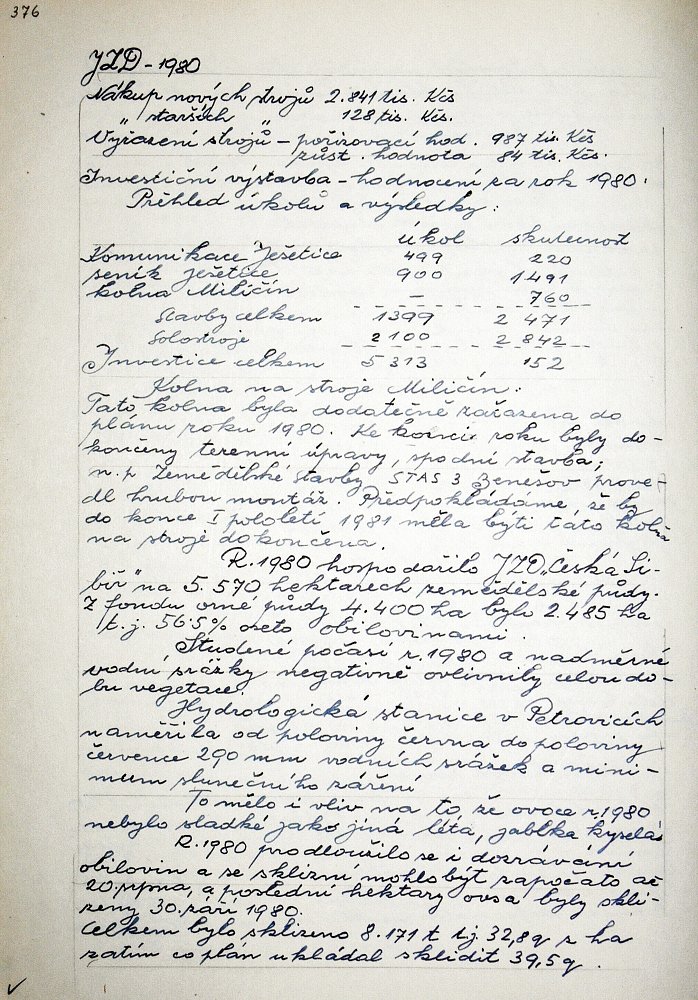 376
JZD - 1980
Nákup nových strojů 2.841 tis. Kčs
„ starších „ 128 tis. Kčs.
Vyřazení strojů - pořizovací hod. 987 tis. Kčs
zůst. hodnota 84 tis. Kčs.
Investiční výstavba - hodnocení za rok 1980.
Přehled úkolů a výsledky:
úkol skutečnost
Komunikace Ješetice 499 220
seník Ješetice 900 1491
kolna Miličín - 760
Stavby celkem 1399 2 471
Solostroje 2100 2 842
Investice celkem 5 313 152
Kolna na stroje Miličín:
Tato kolna byla dodatečně zařazena do
plánu roku 1980. Ke konci roku byly do-
končeny terenní úpravy, spodní stavba;
n.p Zemědělské stavby STAS 3 Benešov prove-
dl hrubou montáž. Předpokládáme, že by
do konce I pololetí 1981 měla býti tato kolna
na stroje dokončena.
R. 1980 hospodařilo JZD „Česká Si-
biř" na 5.570 hektarech zemědělské půdy.
Z fondu orné půdy 4.400 ha bylo 2.485 ha
t.j. 56.5% oseto obilovinami.
Studené počasí r. 1980 a nadměrné
vodní srážky negativně ovlivnily celou do-
bu vegetace.
Hydrologická stanice v Petrovicích
naměřila od poloviny června do poloviny
července 290 mm vodních srážek a mini-
mum slunečního záření
To mělo i vliv na to, že ovoce r. 1980
nebylo sladké jako jiná léta, jablka kyselá.
R. 1980 prodloužilo se i dozrávání
obilovin a se sklizní mohlo být započato až
20. srpna, a poslední hektary ovsa byly skli-
zeny 30. září 1980.
Celkem bylo sklizeno 8.171 t t.j 32,8 q z ha
zatím co plán ukládal sklidit 39,5 q.